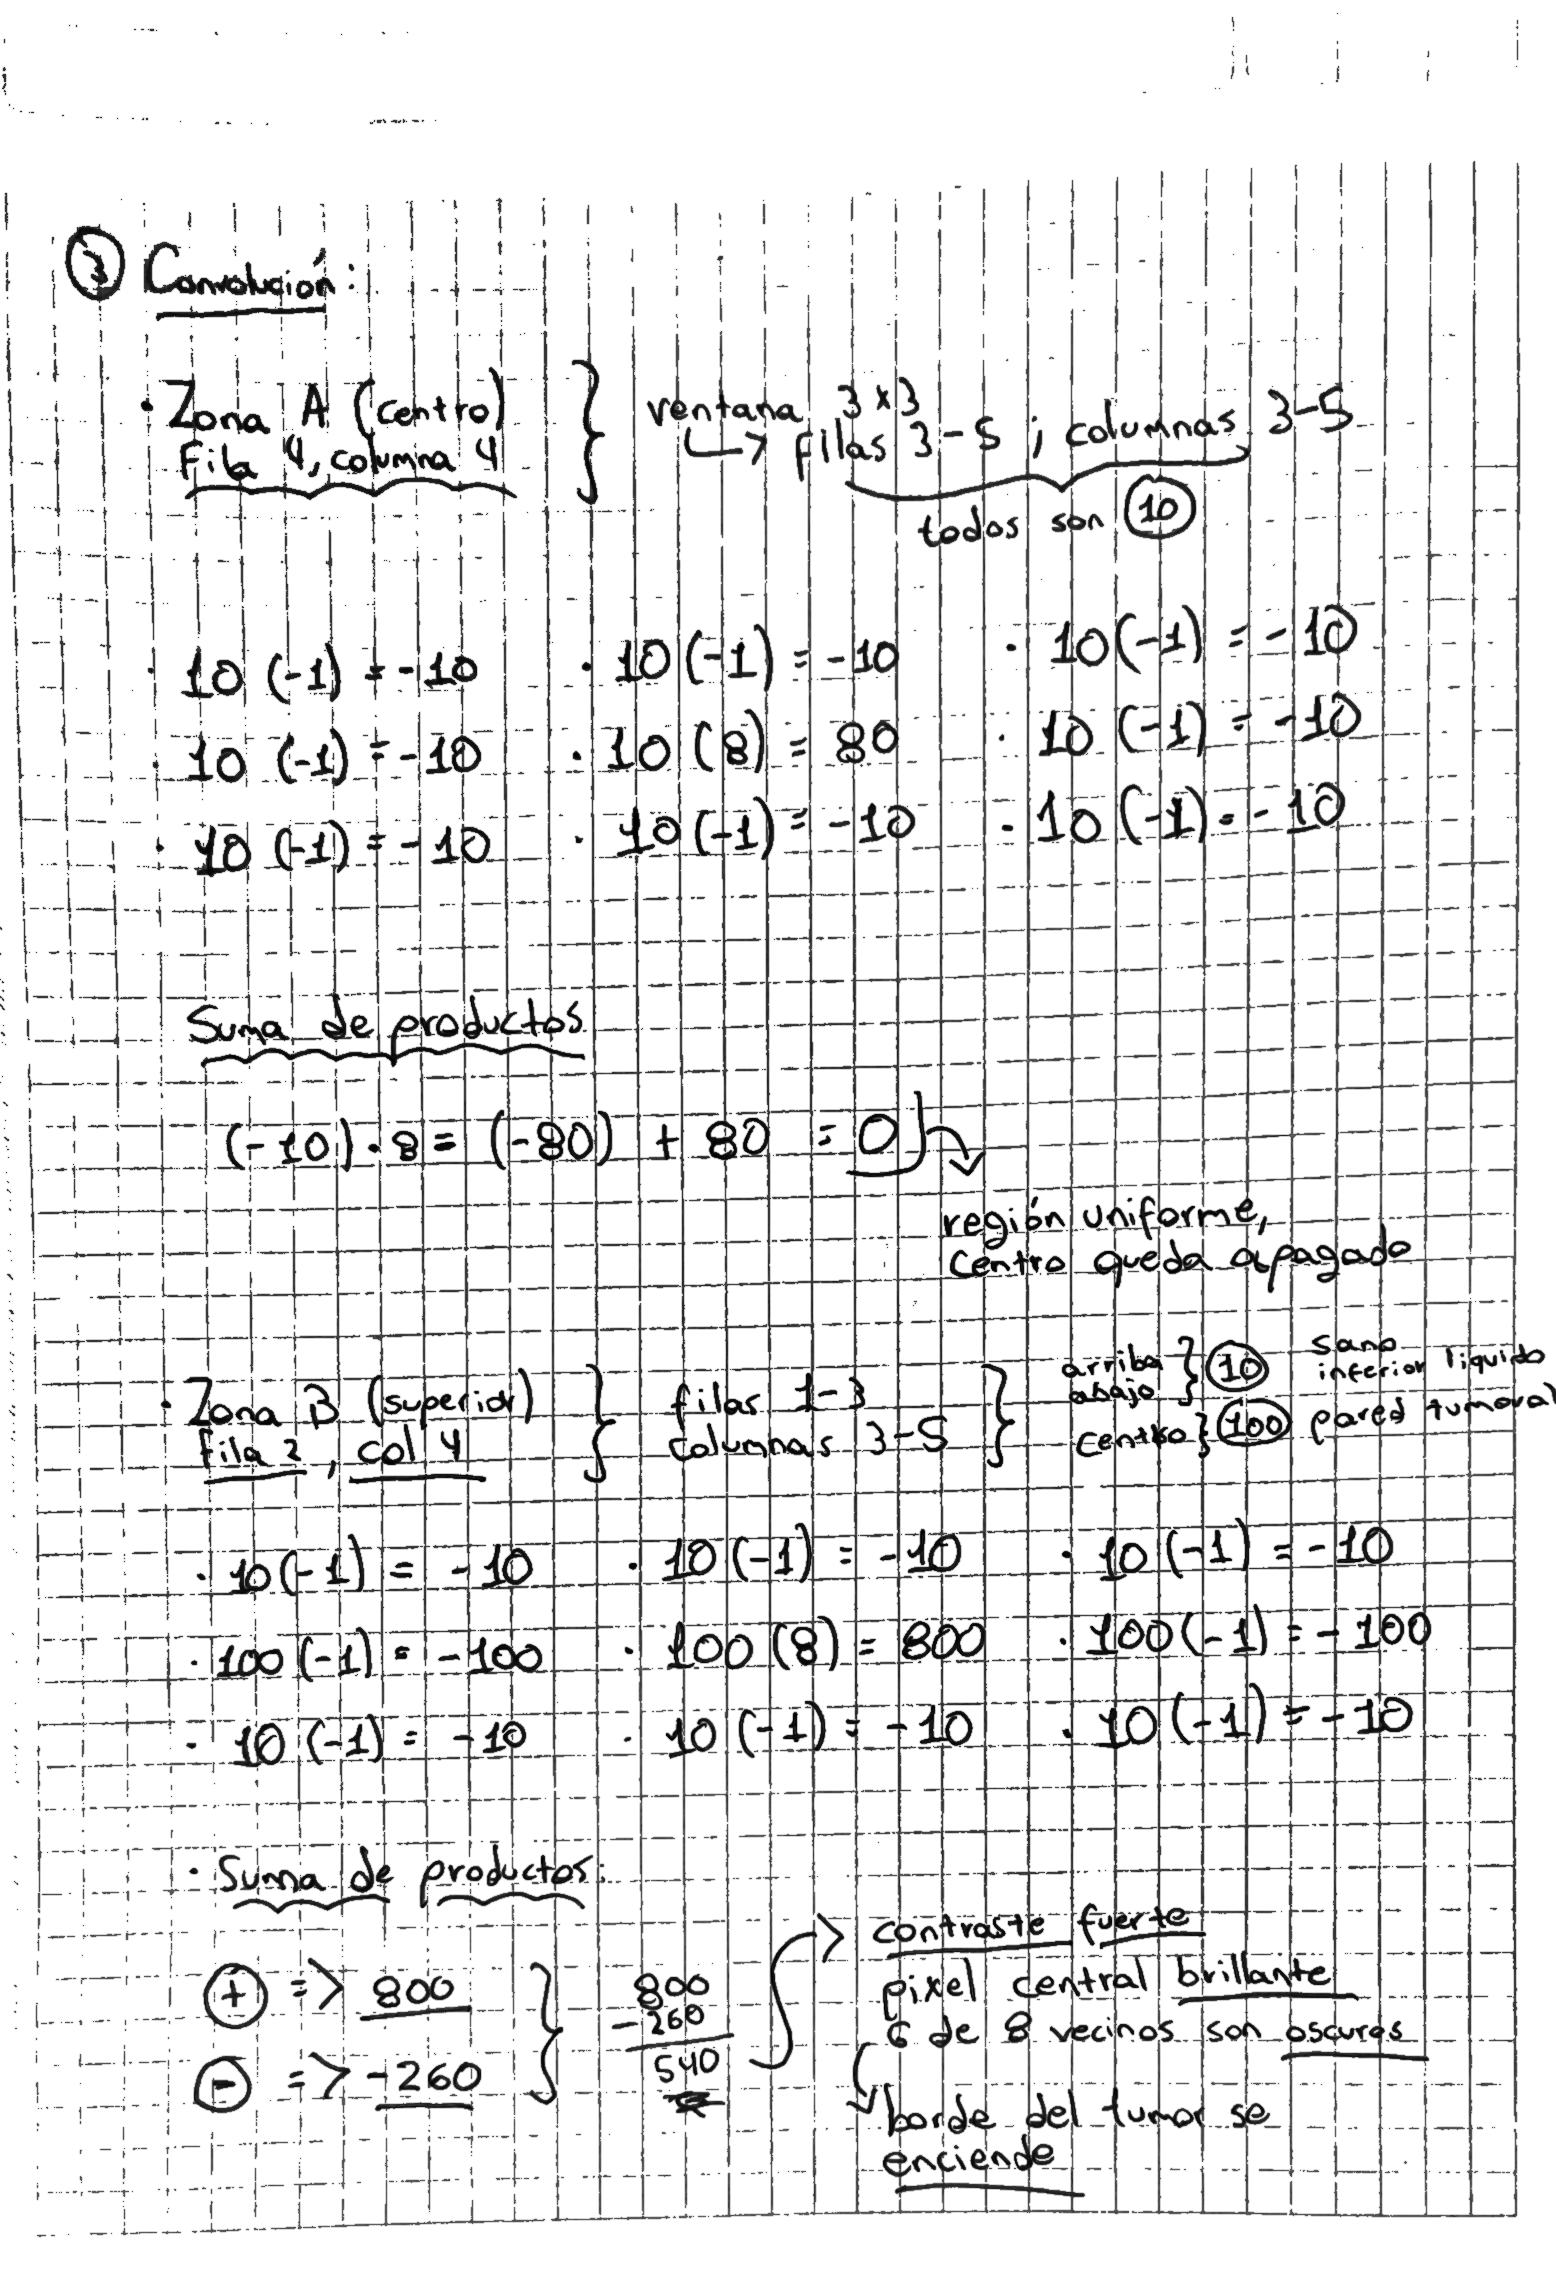 ③ Convolución:
· Zona A (centro) } ventana 3x3
Fila 4, columna 4 ↳ filas 3-5 ; columnas 3-5
todos son 10
· 10 (-1) = -10 · 10 (-1) = -10 · 10 (-1) = -10
· 10 (-1) = -10 · 10 (8) = 80 · 10 (-1) = -10
· 10 (-1) = -10 · 10 (-1) = -10 · 10 (-1) = -10
Suma de productos
(-10) · 8 = (-80) + 80 = 0
región uniforme,
centro queda apagado
· Zona B (superior) } filas 1-3 } arriba abajo } 10 sano inferior liquido
Fila 2, col 4 columnas 3-5 centro } 100 pared tumoral
· 10 (-1) = -10 · 10 (-1) = -10 · 10 (-1) = -10
· 100 (-1) = -100 · 100 (8) = 800 · 100 (-1) = -100
· 10 (-1) = -10 · 10 (-1) = -10 · 10 (-1) = -10
· Suma de productos:
⊕ => 800
⊖ => -260
800
-260
540
> contraste fuerte
pixel central brillante
6 de 8 vecinos son oscuros
borde del tumor se
enciende